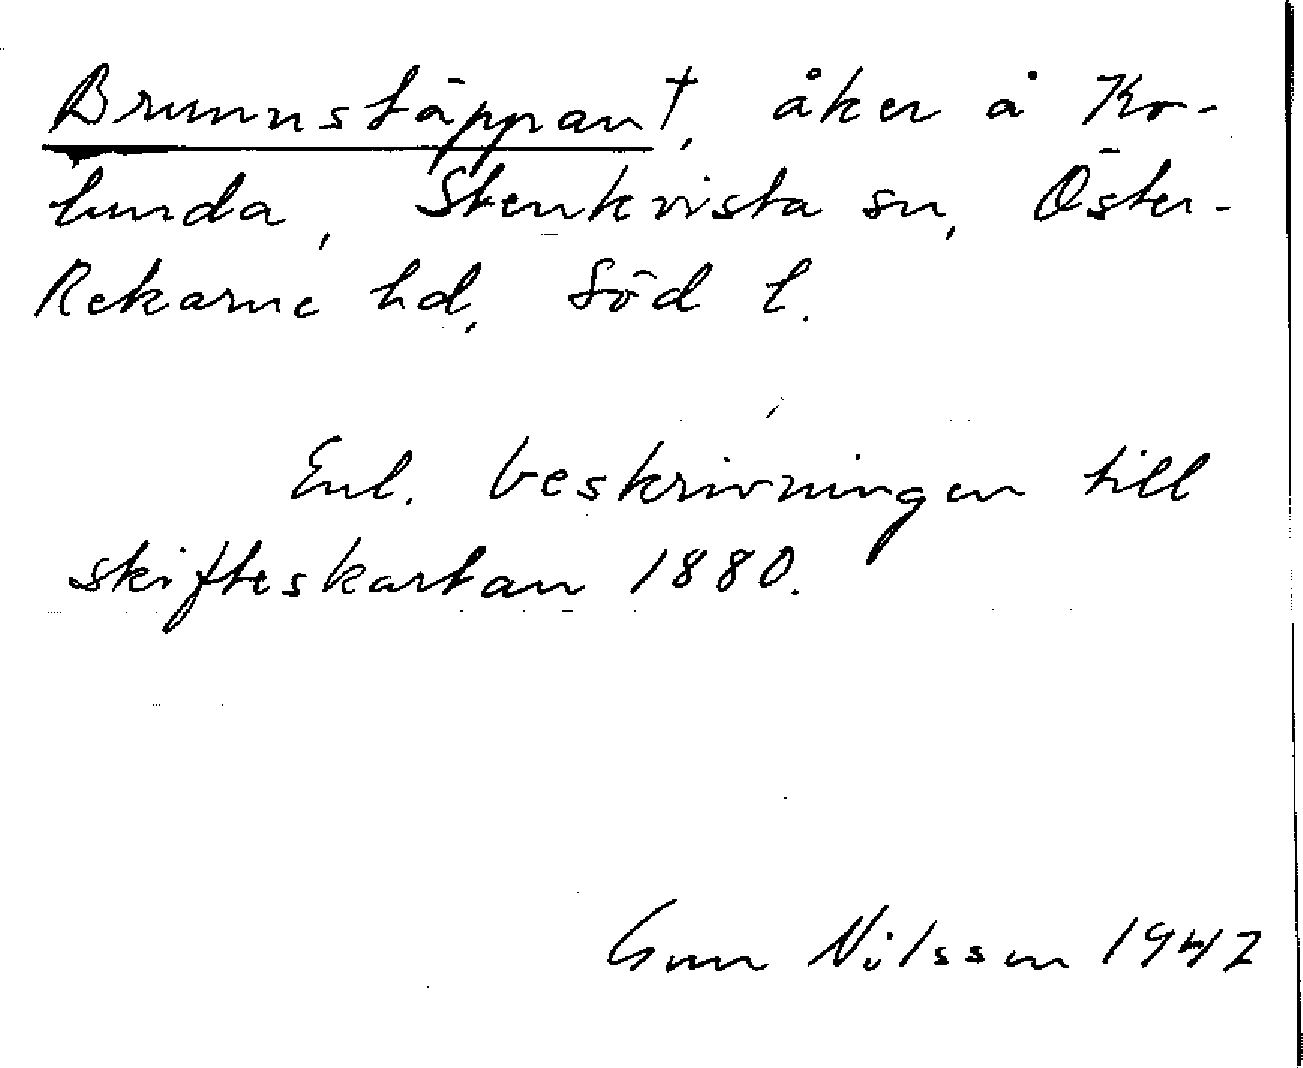 Brunnstäppan†, åker å Kro-
lunda, Stenkvista sn, Öster-
Rekarne hd, Söd l.
Enl. beskrivningen till
skifteskartan 1880.
Gun Nilsson 1947